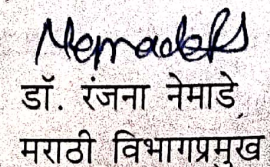 डॉ. रंजना नेमाडे
मराठी विभागप्रमुख